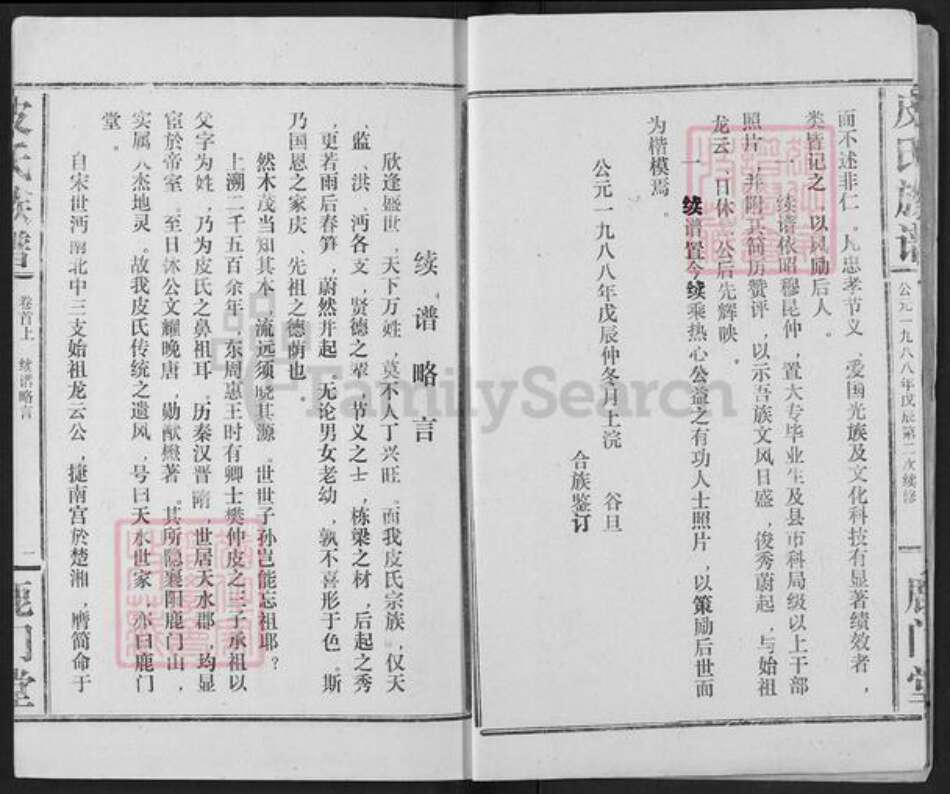 皮氏族谱
公元一九八八年戊辰第二次续修
鹿门堂
而不述非仁。凡忠孝节义、爱国光族及文化科技有显著绩效者，
类皆记之，以风励后人。
一、续谱依昭穆昆仲，置大专毕业生及县市科局级以上干部
照片，并附其简历赞评，以示吾族文风日盛，俊秀蔚起，与始祖
龙云、日休二公后先辉映。
一、续谱置今续乘热心公益之有功人士照片，以策励后世而
为楷模焉。
公元一九八八年戊辰仲冬月上浣 谷旦
合族鉴订
续谱略言
欣逢盛世，天下万姓，莫不人丁兴旺。而我皮氏宗族，仅天
、监、洪、沔各支，贤德之辈，节义之士，栋梁之材，后起之秀
，更若雨后春笋，蔚然并起。无论男女老幼，孰不喜形于色。斯
乃国恩之家庆、先祖之德荫也。
然木茂当知其本，流远须晓其源。世世子孙岂能忘祖耶？
上溯二千五百余年，东周惠王时有卿士樊仲皮之三子承祖以
父字为姓，乃为皮氏之鼻祖耳。历秦汉晋隋，世居天水郡，均显
宦於帝室。至日休公文耀晚唐，勋猷懋著。其所隐襄阳鹿门山，
实属人杰地灵。故我皮氏传统之遗风，号曰天水世家，亦曰鹿门
堂。
自宋世沔南北中三支始祖龙云公，捷南宫於楚湘，膺简命于
皮氏族谱
卷首上 续谱略言
二
鹿门堂
FamilySearch